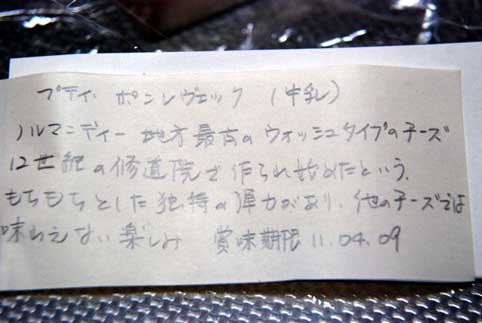 プティ ポンレヴェック （牛乳）
ノルマンディー地方最古のウォッシュタイプのチーズ
12世紀の修道院で作られ始めたという。
もちもちとした独特の弾力があり、他のチーズでは
味わえない楽しみ 賞味期限 11.04.09